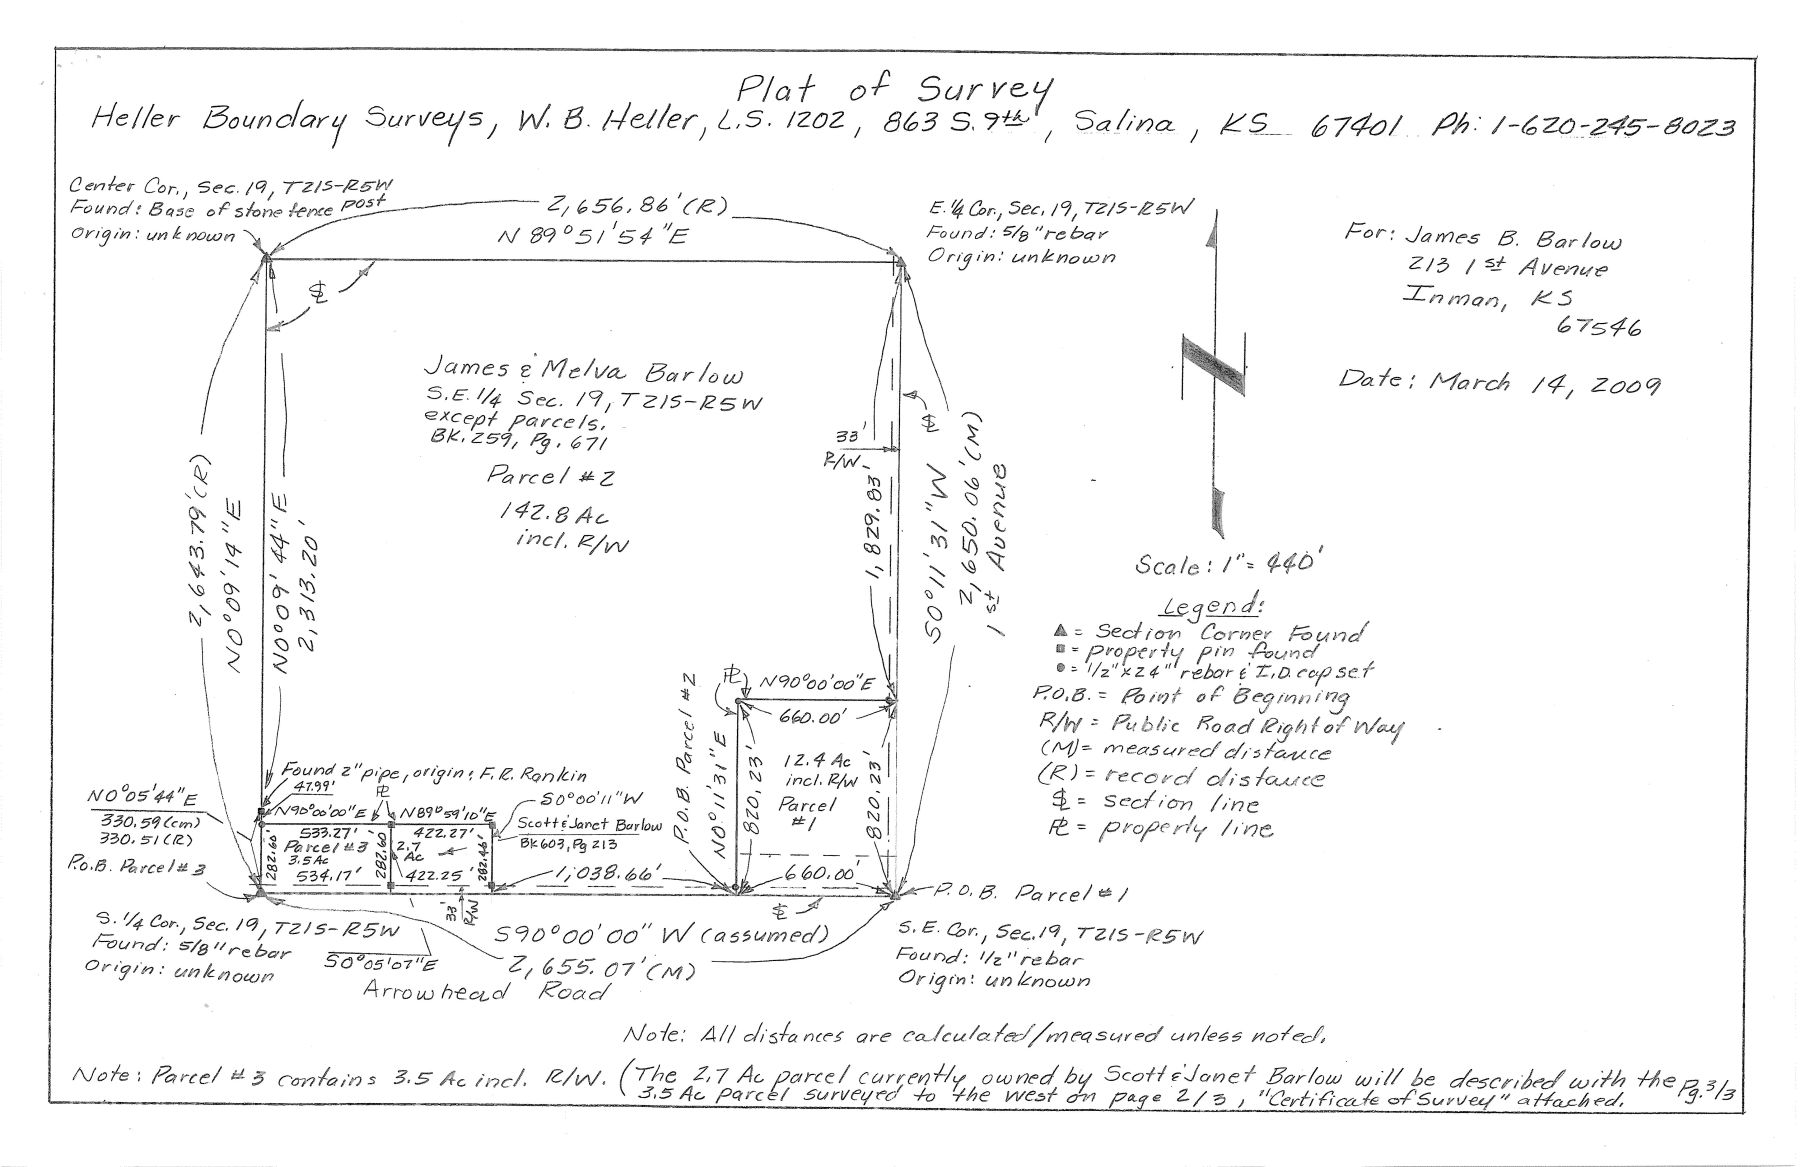 Plat of Survey
Heller Boundary Surveys, W. B. Heller, L.S. 1202, 863 S. 9th, Salina, KS 67401 Ph: 1-620-245-8023
Center Cor., Sec. 19, T21S-R5W
Found: Base of stone fence post
Origin: unknown
2,656.86' (R)
N 89°51'54"E
E. 1/4 Cor., Sec. 19, T21S-R5W
Found: 5/8" rebar
Origin: unknown
For: James B. Barlow
213 1st Avenue
Inman, KS
67546
Date: March 14, 2009
James & Melva Barlow
S.E. 1/4 Sec. 19, T21S-R5W
except parcels.
BK. 259, Pg. 671
Parcel #2
142.8 Ac
incl. R/W
33'
R/W
1,829.83'
S0°11'31"W
2,650.06' (M)
1st Avenue
2,643.79' (R)
N0°09'14"E
N0°09'44"E
2,313.20'
Scale: 1" = 440'
Legend:
▲ = Section Corner Found
■ = property pin found
● = 1/2"x24" rebar & I.D. cap set
P.O.B. = Point of Beginning
R/W = Public Road Right of Way
(M) = measured distance
(R) = record distance
SL = section line
PL = property line
P.O.B. Parcel #2
PL
N90°00'00"E
660.00'
N0°11'31"E
820.23'
12.4 Ac
incl. R/W
Parcel
#1
820.23'
660.00'
P.O.B. Parcel #1
Found 2" pipe, origin: F.R. Rankin
47.99'
PL
N0°05'44"E
330.59 (cm)
330.51 (R)
P.o.B. Parcel #3
N90°00'00"E
533.27'
Parcel #3
3.5 Ac
534.17'
282.60'
282.60
N89°59'10"E
422.27'
2.7
Ac
422.25'
282.46'
S0°00'11"W
Scott & Janet Barlow
BK603, Pg 213
1,038.66'
33'
R/W
SL
S. 1/4 Cor., Sec. 19, T21S-R5W
Found: 5/8" rebar
Origin: unknown
S0°05'07"E
S90°00'00" W (assumed)
2,655.07' (M)
Arrowhead Road
S.E. Cor., Sec. 19, T21S-R5W
Found: 1/2" rebar
Origin: unknown
Note: All distances are calculated/measured unless noted.
Note: Parcel #3 contains 3.5 Ac incl. R/W. (The 2.7 Ac parcel currently owned by Scott & Janet Barlow will be described with the
3.5 Ac parcel surveyed to the west on page 2/3, "Certificate of Survey" attached.
Pg. 3/3